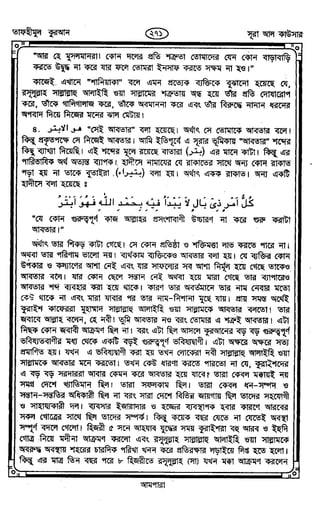 তাফহীমুল কুরআন
২৭১
সূরা আল কাউসার
"আর হে মুসলমানরা! কোন দলের প্রতি শত্রুতা তোমাদের যেন কোন বাড়াবাড়ি
করতে উদ্বুদ্ধ না করে যার ফলে তোমরা ইনসাফ করতে সক্ষম না হও।"
কাজেই এখানে "শানিয়াকা" বলে এমন প্রত্যেক ব্যক্তিকে বুঝানো হয়েছে যে,
রসূলুল্লাহ সাল্লাল্লাহু আলাইহি ওয়া সাল্লামের শত্রুতায় অন্ধ হয়ে তাঁর প্রতি দোষারোপ
করে, তাঁকে গালিগালাজ করে, তাঁকে অবমাননা করে এবং তাঁর বিরুদ্ধে নানান ধরনের
অপবাদ দিয়ে নিজের মনের ঝাল মেটায়।
৪. هو الابتر "সেই আবতার" বলা হয়েছে। অর্থাৎ সে তোমাকে আবতার বলে।
কিন্তু প্রকৃতপক্ষে সে নিজেই আবতার। আমি ইতিপূর্বে এ সূরার ভূমিকায় "আবতার" শব্দের
কিছু ব্যাখ্যা দিয়েছি। এই শব্দের মূলে রয়েছে বাতারা (بتر) এর মানে কাটা। কিন্তু এর
পারিভাষিক অর্থ অত্যন্ত ব্যাপক। হাদীসে নামাযের যে রাকাতের সাথে অন্য কোন রাকাত
পড়া হয় না তাকে বুতাইরা (بتيراء) বলা হয়। অর্থাৎ একক রাকাত। অন্য একটি
হাদীসে বলা হয়েছে :
كُلُّ أَمْرٍ ذِي بَالٍ لَا يُبْدَأُ فِيْهِ بِحَمْدِ اللّٰهِ فَهُوَ أَبْتَرُ
"যে কোন গুরুত্বপূর্ণ কাজ আল্লাহর প্রশংসাবাণী উচ্চারণ না করে শুরু করাটা
আবতার।"
অর্থাৎ তার শিকড় কাটা গেছে। সে কোন প্রতিষ্ঠা ও শক্তিমত্তা লাভ করতে পারে না।
অথবা তার পরিণাম ভালো নয়। ব্যর্থকাম ব্যক্তিকেও আবতার বলা হয়। যে ব্যক্তির কোন
উপকার ও কল্যাণের আশা নেই এবং যার সাফল্যের সব আশা নির্মূল হয়ে গেছে তাকেও
আবতার বলে। যার কোন ছেলে সন্তান নেই অথবা হয়ে মারা গেছে তার ব্যাপারেও
আবতার শব্দ ব্যবহার করা হয়ে থাকে। কারণ তার অবর্তমানে তার নাম নেবার মতো
কেউ থাকে না এবং মারা যাবার পর তার নাম-নিশানা মুছে যায়। প্রায় সমস্ত অর্থেই
কুরাইশ কাফেররা মুহাম্মাদ সাল্লাল্লাহু আলাইহি ওয়া সাল্লামকে আবতার বলতো। তার
জবাবে আল্লাহ বলেন, হে নবী! তুমি আবতার নও বরং তোমার এ শত্রুই আবতার। এটা
নিছক কোন জবাবী আক্রমণ ছিল না। বরং এটা ছিল আসলে কুরআনের বড় বড় গুরুত্বপূর্ণ
ভবিষ্যতবাণীর মধ্য থেকে একটি বড়ই গুরুত্বপূর্ণ ভবিষ্যদ্বাণী। এটা অক্ষরে অক্ষরে সত্য
প্রমাণিত হয়। যখন এ ভবিষ্যদ্বাণী করা হয় তখন লোকেরা নবী সাল্লাল্লাহু আলাইহি ওয়া
সাল্লামকে আবতার মনে করতো। তখন কেউ ধারণা করতে পারতো না যে, কুরাইশদের
এ বড় বড় সরদাররা আবার কেমন করে আবতার হয়ে যাবে? তারা কেবল মক্কায়ই নয়
সমগ্র দেশে খ্যাতিমান ছিল। তারা সফলকাম ছিল। তারা কেবল ধন-সম্পদ ও
সন্তান-সন্ততির অধিকারী ছিল না বরং সারা দেশে বিভিন্ন জায়গায় ছিল তাদের সহযোগী
ও সাহায্যকারী দল। ব্যবসার ইজারাদার ও হজ্জের ব্যবস্থাপক হবার কারণে আরবের
সকল গোত্রের সাথে ছিল তাদের সম্পর্ক। কিন্তু কয়েক বছর যেতে না যেতেই অবস্থা
সম্পূর্ণ বদলে গেলো। হিজরী ৫ সনে আহযাব যুদ্ধের সময় কুরাইশরা বহু আরব ও ইহুদি
গোত্র নিয়ে মদীনা আক্রমণ করলো এবং রসূলুল্লাহ সাল্লাল্লাহু আলাইহি ওয়া সাল্লামকে
অবরুদ্ধ অবস্থায় শহরের চারদিক পরিখা খনন করে প্রতিরক্ষার লড়াইয়ে লিপ্ত হতে হলো।
কিন্তু এর মাত্র তিন বছর পরে ৮ হিজরীতে রসূলুল্লাহ (সা) যখন মক্কা আক্রমণ করলেন
আমপারা